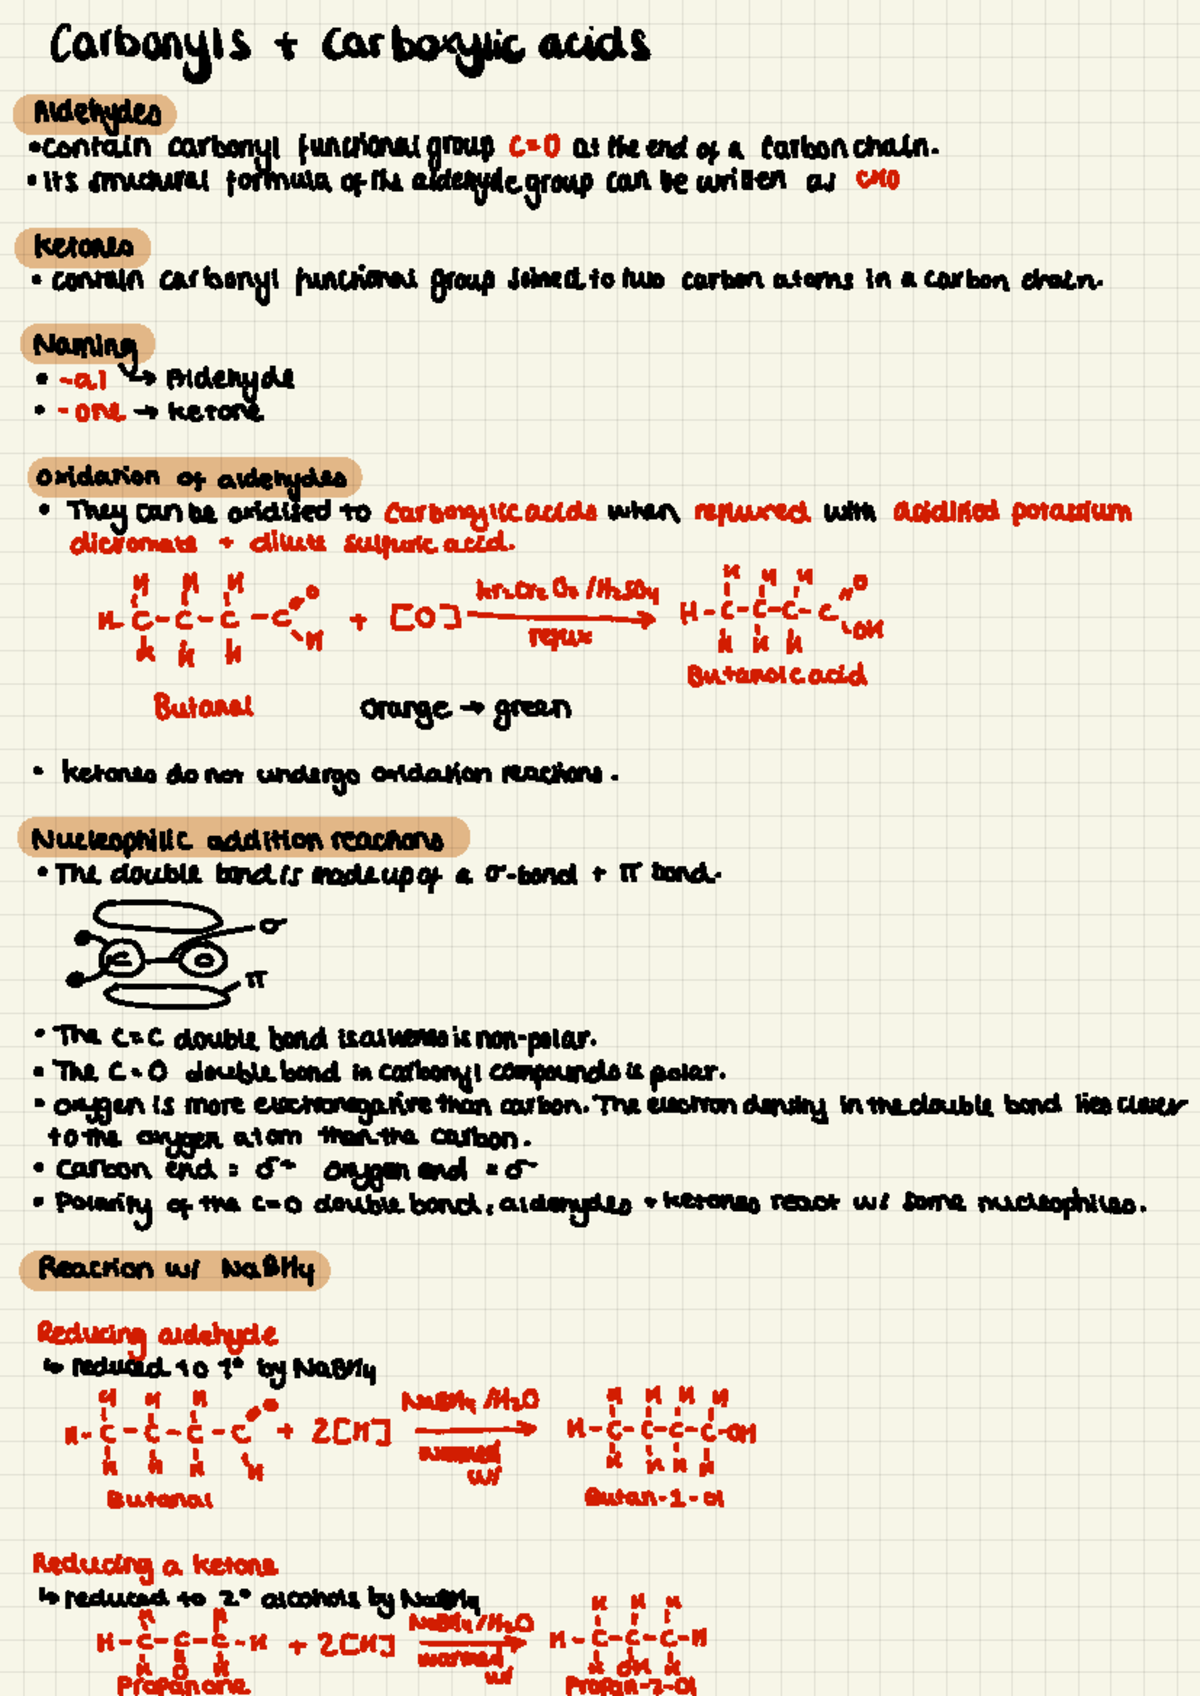 Carbonyls + Carboxylic acids
Aldehydes
• contain carbonyl functional group C=O at the end of a carbon chain.
• Its structural formula of the aldehyde group can be written as CHO
Ketones
• contain carbonyl functional group joined to two carbon atoms in a carbon chain.
Naming
• -al → Aldehyde
• -one → ketone
oxidation of aldehydes
• They can be oxidised to carboxylic acids when refluxed with acidified potassium
dicromate + dilute sulfuric acid.
H H H O
H-C-C-C-C + [O] K2Cr2O7/H2SO4 H-C-C-C-C
H H H H reflux H H H OH
Butanoic acid
Butanal orange → green
• ketones do not undergo oxidation reactions.
Nucleophilic addition reactions
• The double bond is made up of a σ-bond + π bond.
σ
C O
π
• The C=C double bond is alkenes is non-polar.
• The C=O double bond in carbonyl compounds is polar.
• oxygen is more electronegative than carbon. The electron density in the double bond lies closer
to the oxygen atom than the carbon.
• Carbon end = δ+ oxygen end = δ-
• Polarity of the C=O double bond, aldehydes + ketones react w/ some nucleophiles.
Reaction w/ NaBH4
Reducing aldehyde
↳ reduced to 1° by NaBH4
H H H O NaBH4/H2O H H H H
H-C-C-C-C + 2[H] H-C-C-C-C-OH
H H H H warmed w/ H H H H
Butanal Butan-1-ol
Reducing a ketone
↳ reduced to 2° alcohols by NaBH4
H H NaBH4/H2O H H H
H-C-C-C-H + 2[H] H-C-C-C-H
H O H warmed w/ H OH H
Propanone Propan-2-ol